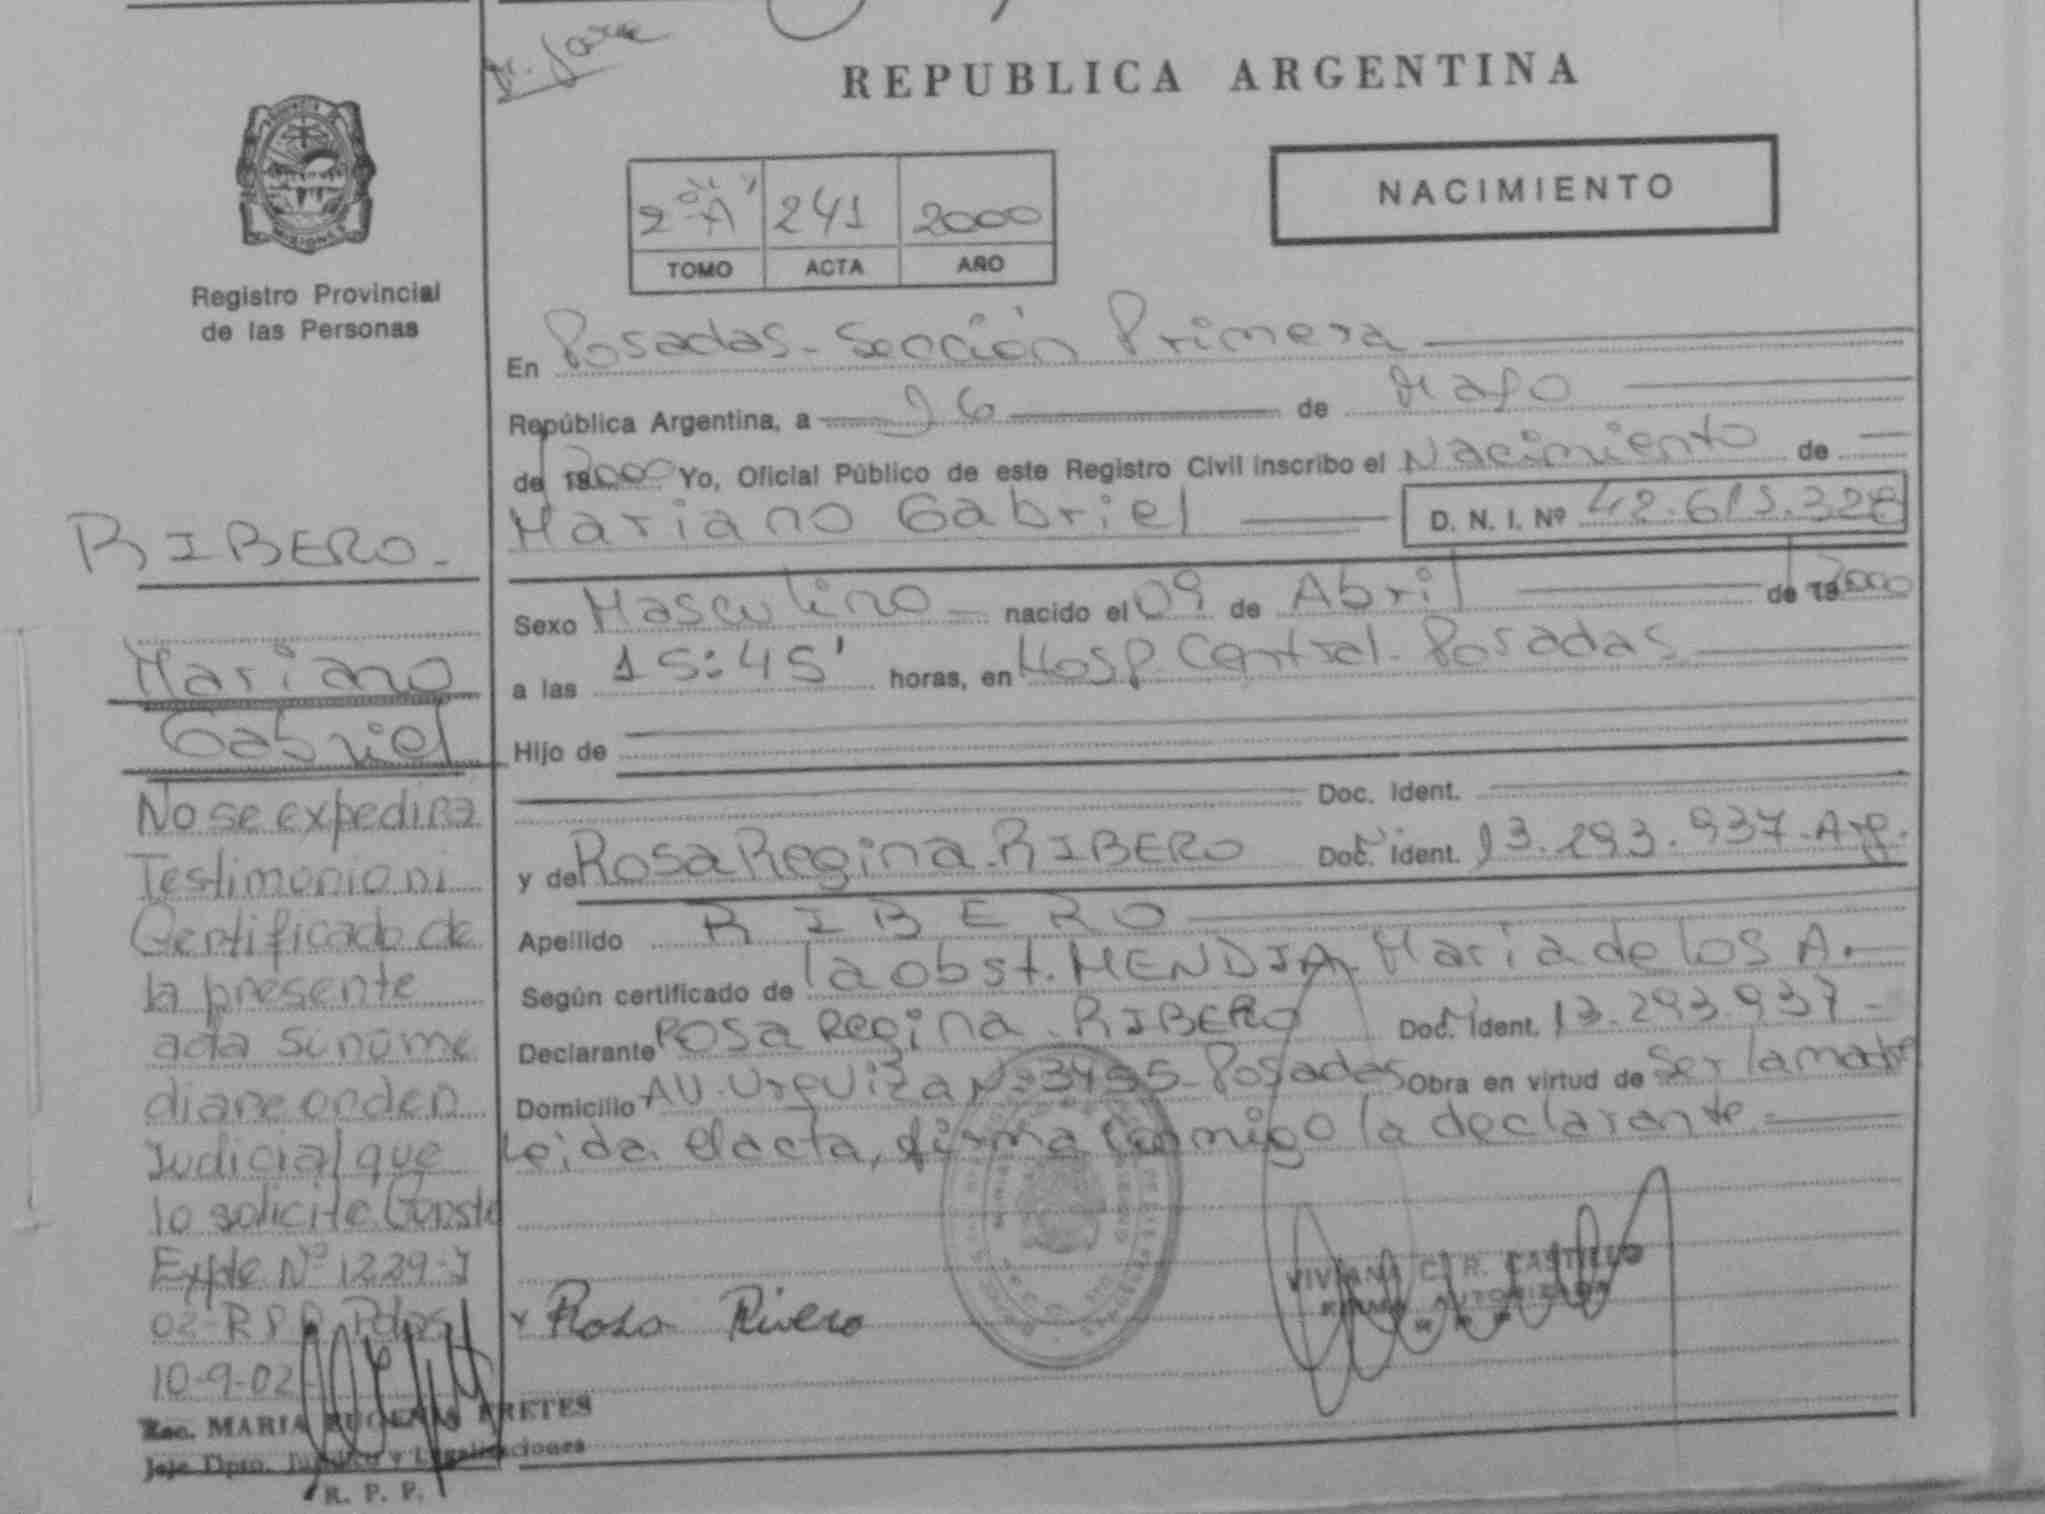 REPUBLICA ARGENTINA
NACIMIENTO
2º "A" 241 2000
TOMO ACTA AÑO
PROVINCIA
MISIONES
Registro Provincial
de las Personas
En Posadas - Sección Primera
República Argentina, a 16 de Mayo
de 19 2000 Yo, Oficial Público de este Registro Civil inscribo el Nacimiento de
Mariano Gabriel D. N. I. Nº 42.615.328
Sexo Masculino nacido el 09 de Abril de 19 2000
a las 15:45' horas, en Hosp. Central - Posadas
Hijo de
Doc. Ident.
y de Rosa Regina RIBERO Doc. Ident. 13.293.937 - Arg.
Apellido RIBERO
Según certificado de la obst. MENDIA, Maria de los A.
Declarante Rosa Regina RIBERO Doc. Ident. 13.293.937 -
Domicilio AV. Urquiza Nº 3455 - Posadas Obra en virtud de ser la madre
Leida el acta, firma conmigo la declarante.
Rosa Rivero
VIVIANA C. R. CASTILLO
FIRMA AUTORIZADA
RIBERO -
Mariano
Gabriel
No se expedira
Testimonio ni
Certificado de
la presente
acta si no me
diare orden
Judicial que
lo solicite Conste
Expte Nº 1229-J
02-R.P.P. Pdas
10-9-02
Esc. MARIA EUGENIA FRETES
Jefe Dpto. Jurídico y Legalizaciones
R. P. P.